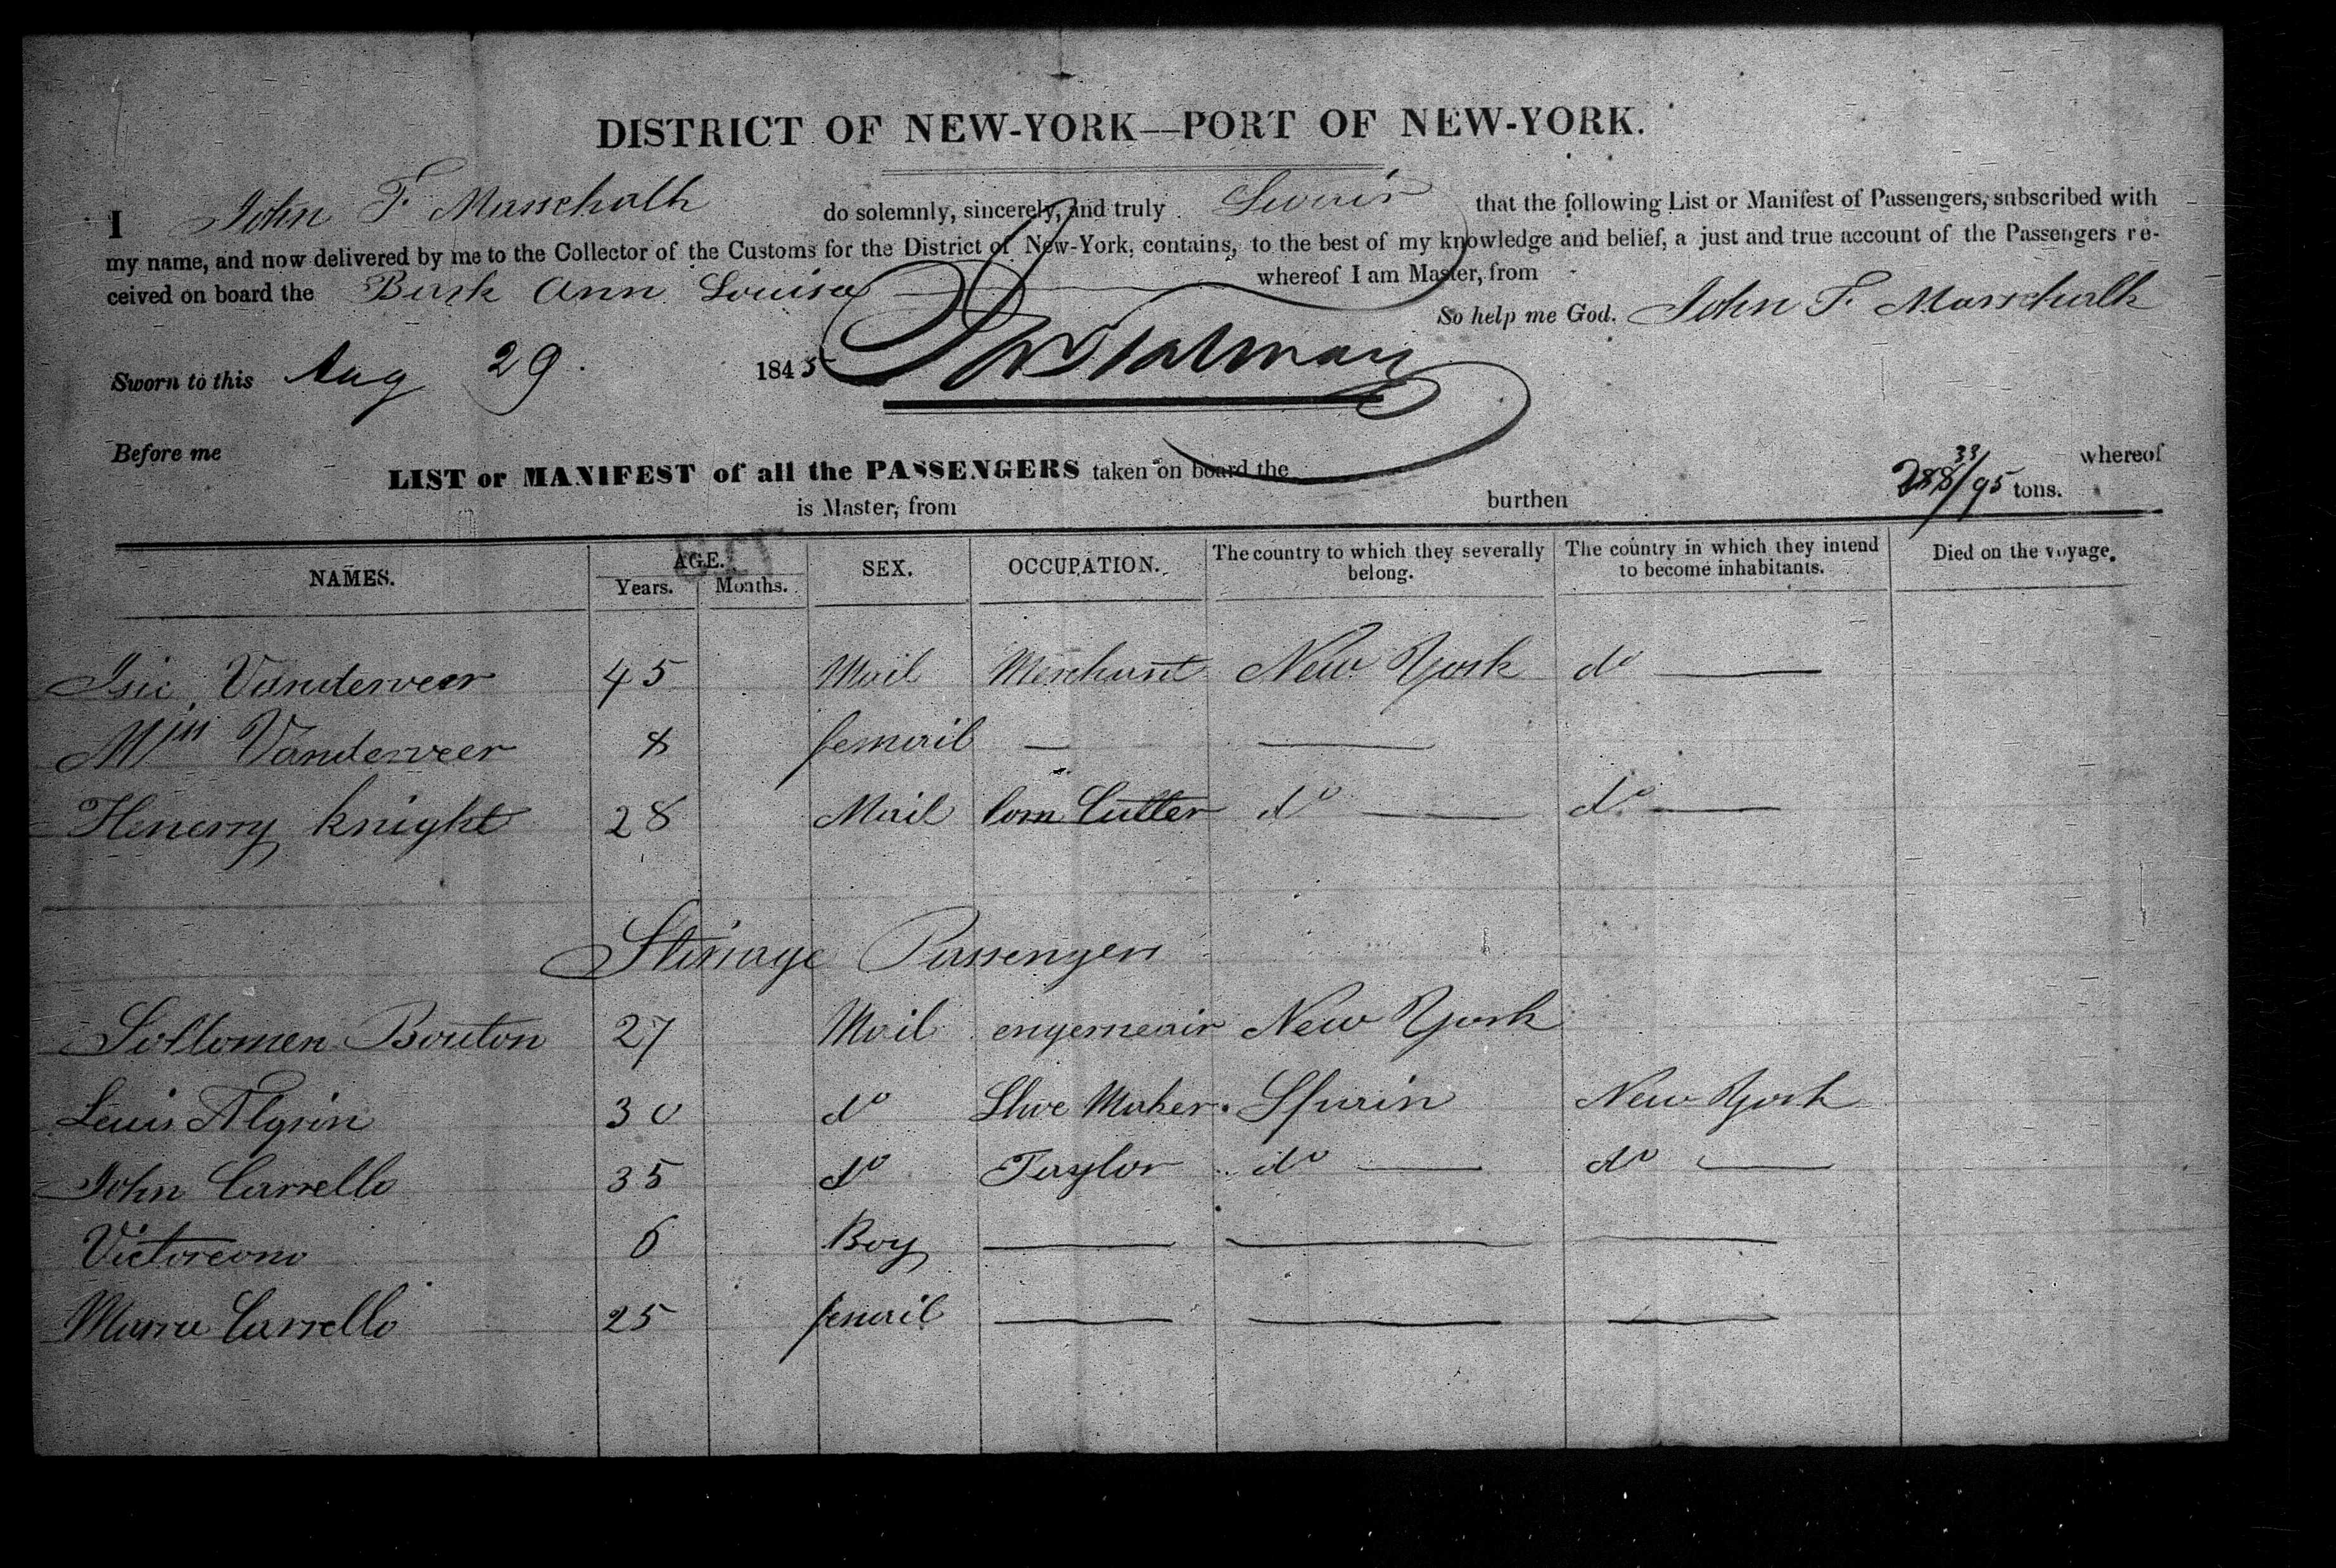 DISTRICT OF NEW-YORK—PORT OF NEW-YORK.
I John F. Marschalk do solemnly, sincerely, and truly Swair that the following List or Manifest of Passengers, subscribed with
my name, and now delivered by me to the Collector of the Customs for the District of New-York, contains, to the best of my knowledge and belief, a just and true account of the Passengers re-
ceived on board the Bark Ann Louisa whereof I am Master, from
So help me God. John F. Marschalk
Sworn to this Aug 29. 1845
Before me
LIST or MANIFEST of all the PASSENGERS taken on board the whereof
is Master, from burthen 288 33/95 tons.
NAMES. AGE. Years. Months. SEX. OCCUPATION. The country to which they severally belong. The country in which they intend to become inhabitants. Died on the voyage.
Isic Vanderveer 45 Mail Merchant New York do —
Miss Vanderveer 8 femail — —
Henerry knight 28 Mail Cutter do — do —
Stirrage Passengers
Sollomen Bouton 27 Mail engerneair New York
Lewis Algrin 30 do Shoe Maker. Spain New York
John Carrello 35 do Taylor do — do —
Victoreono 6 Boy — — —
Marra Carrello 25 femail — — —